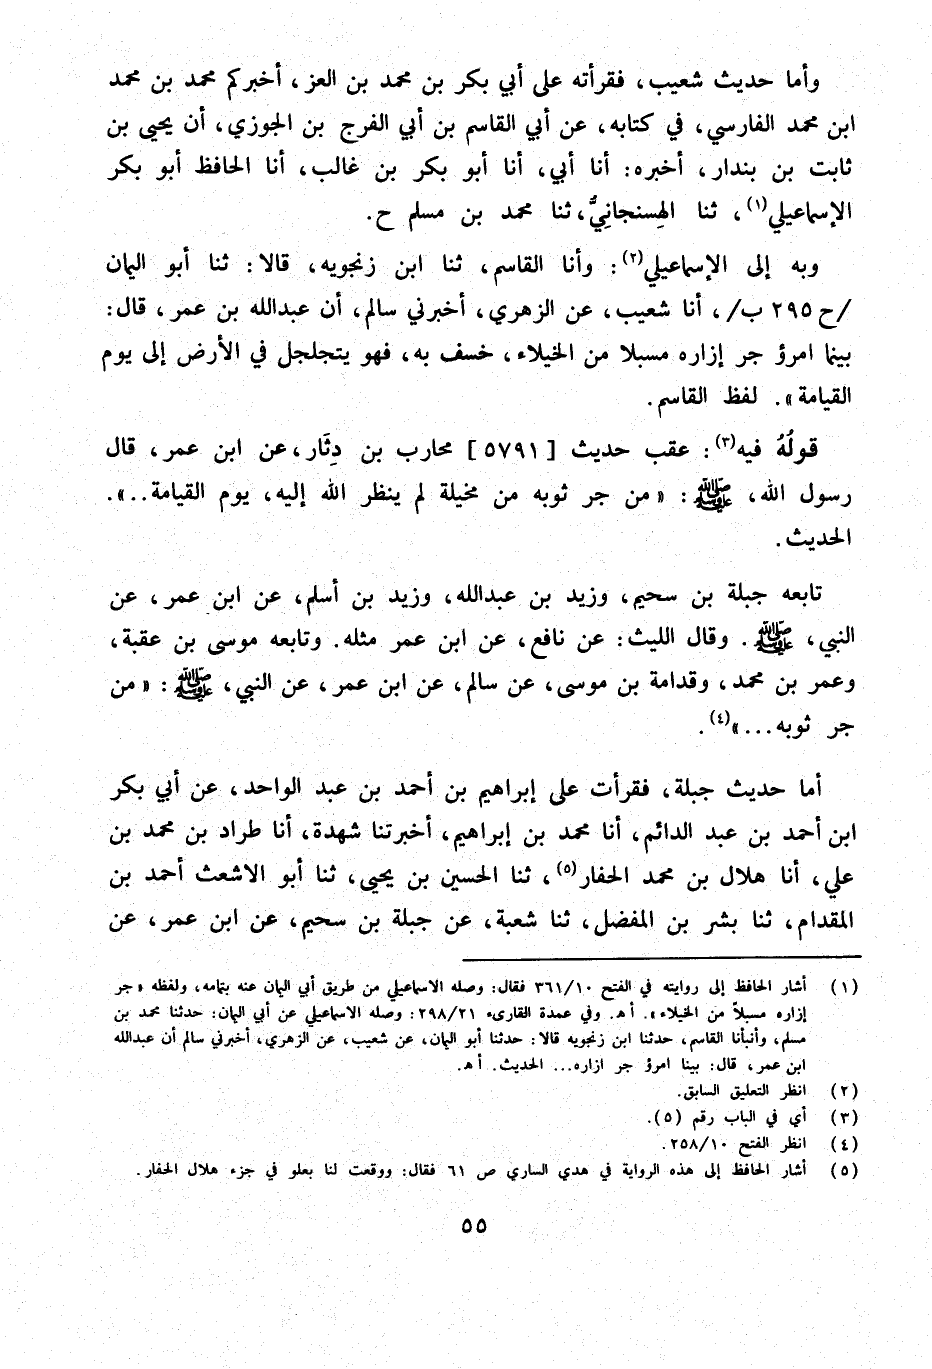 وأما حديث شعيب، فقرأته على أبي بكر بن محمد بن العز، أخبركم محمد بن محمد
ابن محمد الفارسي، في كتابه، عن أبي القاسم بن أبي الفرج بن الجوزي، أن يحيى بن
ثابت بن بندار، أخبره: أنا أبي، أنا أبو بكر بن غالب، أنا الحافظ أبو بكر
الإسماعيلي(١)، ثنا الهِسنجانيُّ، ثنا محمد بن مسلم ح.
وبه إلى الإسماعيلي(٢): وأنا القاسم، ثنا ابن زنجويه، قالا: ثنا أبو اليمان
/ح ٢٩٥ ب/، أنا شعيب، عن الزهري، أخبرني سالم، أن عبدالله بن عمر، قال:
بينما امرؤ جر إزاره مسبلا من الخيلاء، خسف به، فهو يتجلجل في الأرض إلى يوم
القيامة». لفظ القاسم.
قولُهُ فيه(٣): عقب حديث [٥٧٩١] محارب بن دِثَار، عن ابن عمر، قال
رسول الله، ﷺ: «من جر ثوبه من مخيلة لم ينظر الله إليه، يوم القيامة..».
الحديث.
تابعه جبلة بن سحيم، وزيد بن عبدالله، وزيد بن أسلم، عن ابن عمر، عن
النبي، ﷺ. وقال الليث: عن نافع، عن ابن عمر مثله. وتابعه موسى بن عقبة،
وعمر بن محمد، وقدامة بن موسى، عن سالم، عن ابن عمر، عن النبي، ﷺ: «من
جر ثوبه...»(٤).
أما حديث جبلة، فقرأت على إبراهيم بن أحمد بن عبد الواحد، عن أبي بكر
ابن أحمد بن عبد الدائم، أنا محمد بن إبراهيم، أخبرتنا شهدة، أنا طراد بن محمد بن
علي، أنا هلال بن محمد الحفار(٥)، ثنا الحسين بن يحيى، ثنا أبو الاشعث أحمد بن
المقدام، ثنا بشر بن المفضل، ثنا شعبة، عن جبلة بن سحيم، عن ابن عمر، عن
(١) أشار الحافظ إلى روايته في الفتح ٣٦١/١٠ فقال: وصله الاسماعيلي من طريق أبي اليمان عنه بتمامه، ولفظه «جر
إزاره مسبلاً من الخيلاء». أ هـ. وفي عمدة القارىء ٢٩٨/٢١: وصله الاسماعيلي عن أبي اليمان: حدثنا محمد بن
مسلم، وأنبأنا القاسم، حدثنا ابن زنجويه قالا: حدثنا أبو اليمان، عن شعيب، عن الزهري، أخبرني سالم أن عبدالله
ابن عمر، قال: بينا امرؤ جر ازاره... الحديث. أ هـ.
(٢) انظر التعليق السابق.
(٣) أي في الباب رقم (٥).
(٤) انظر الفتح ٢٥٨/١٠.
(٥) أشار الحافظ إلى هذه الرواية في هدي الساري ص ٦١ فقال: ووقعت لنا بعلو في جزء هلال الحفار.
٥٥